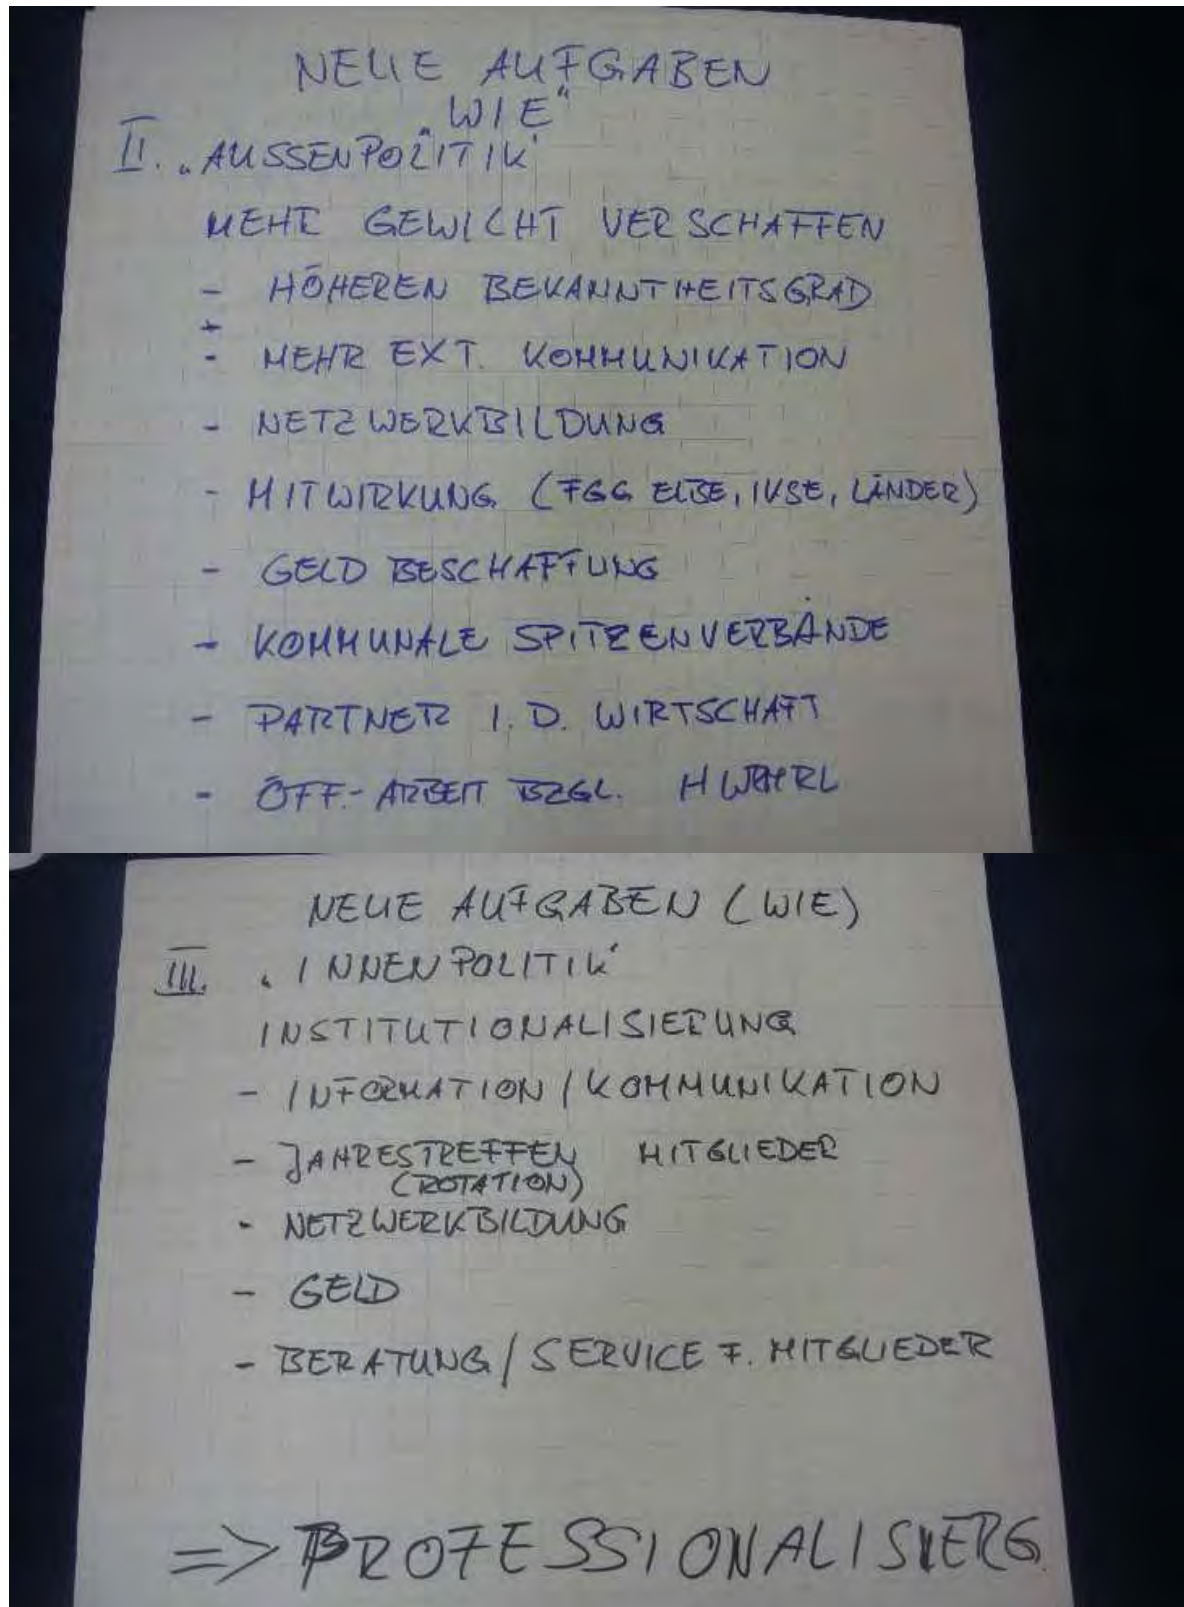 NEUE AUFGABEN
„WIE“
II. „AUSSENPOLITIK“
MEHR GEWICHT VERSCHAFFEN
- HÖHEREN BEKANNTHEITSGRAD
- MEHR EXT. KOMMUNIKATION
- NETZWERKBILDUNG
- MITWIRKUNG (FGG ELBE, IKSE, LÄNDER)
- GELD BESCHAFFUNG
- KOMMUNALE SPITZENVERBÄNDE
- PARTNER I. D. WIRTSCHAFT
- ÖFF.-ARBEIT BZGL. HWRMRL
NEUE AUFGABEN (WIE)
III. „INNENPOLITIK“
INSTITUTIONALISIERUNG
- INFORMATION / KOMMUNIKATION
- JAHRESTREFFEN MITGLIEDER
(ROTATION)
- NETZWERKBILDUNG
- GELD
- BERATUNG / SERVICE F. MITGLIEDER
=> PROFESSIONALISIERG.